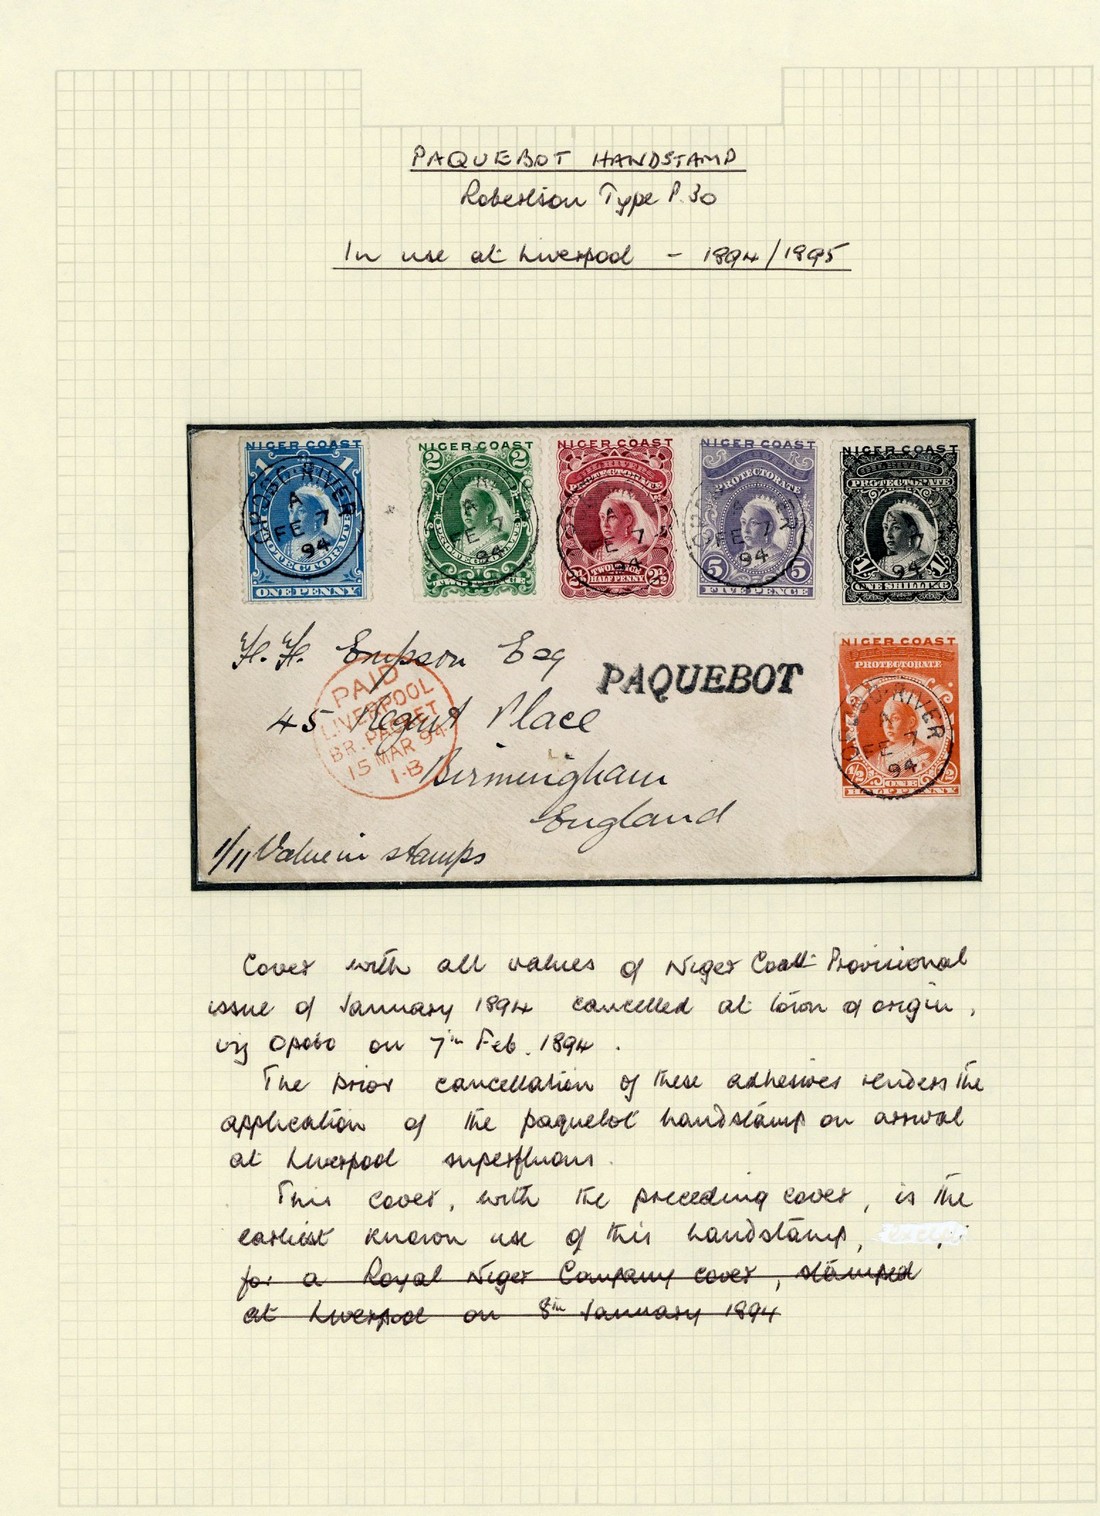 PAQUEBOT HANDSTAMP
Robertson Type P.30
In use at Liverpool - 1894/1895
NIGER COAST
1 1
PROTECTORATE
ONE PENNY
OPOBO·RIVER
A
FE 7
94
NIGER COAST
2 2
A
FE 7
94
NIGER COAST
OIL RIVERS
PROTECTORATE
2½ TWO PENCE 2½
HALF PENNY
A
FE 7
94
NIGER COAST
PROTECTORATE
5 5
FIVE PENCE
FE 7
94
NIGER COAST
OIL RIVERS
PROTECTORATE
1/- 1/-
ONE SHILLING
7
94
NIGER COAST
PROTECTORATE
½ ONE ½
HALF PENNY
OPOBO·RIVER
A
FE 7
94
H. H. Empson Esq
PAQUEBOT
45 Regent Place
Birmingham
England
1/11 Value in stamps
PAID
LIVERPOOL
BR. PACKET
15 MAR 94
1·B
Cover with all values of Niger Coast Provisional
issue of January 1894 cancelled at town of origin,
viz Opobo on 7th Feb. 1894.
The prior cancellation of these adhesives renders the
application of the paquebot handstamp on arrival
at Liverpool superfluous.
This cover, with the preceding cover, is the
earliest known use of this handstamp,
for a Royal Niger Company cover, stamped
at Liverpool on 8th January 1894